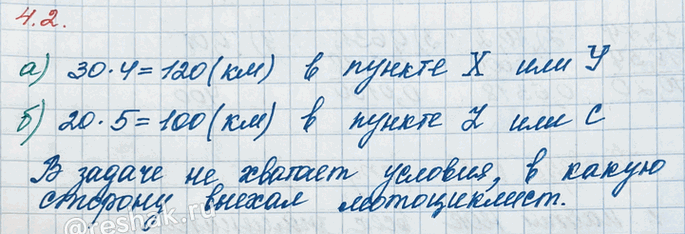 4.2.
а) 30·4=120(км) в пункте X или У
б) 20·5=100(км) в пункте Z или С
В задаче не хватает условия, в какую
сторону выехал мотоциклист.
©reshak.ru